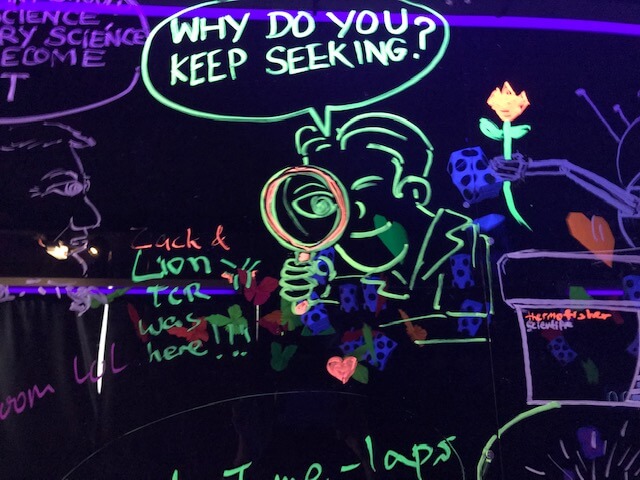 SCIENCE,
RY SCIENCE
ECOME
T
WHY DO YOU
KEEP SEEKING?
Zack &
Lion
TCR
was
here!!!
oom LOL
thermofisher
scientific
Time-laps